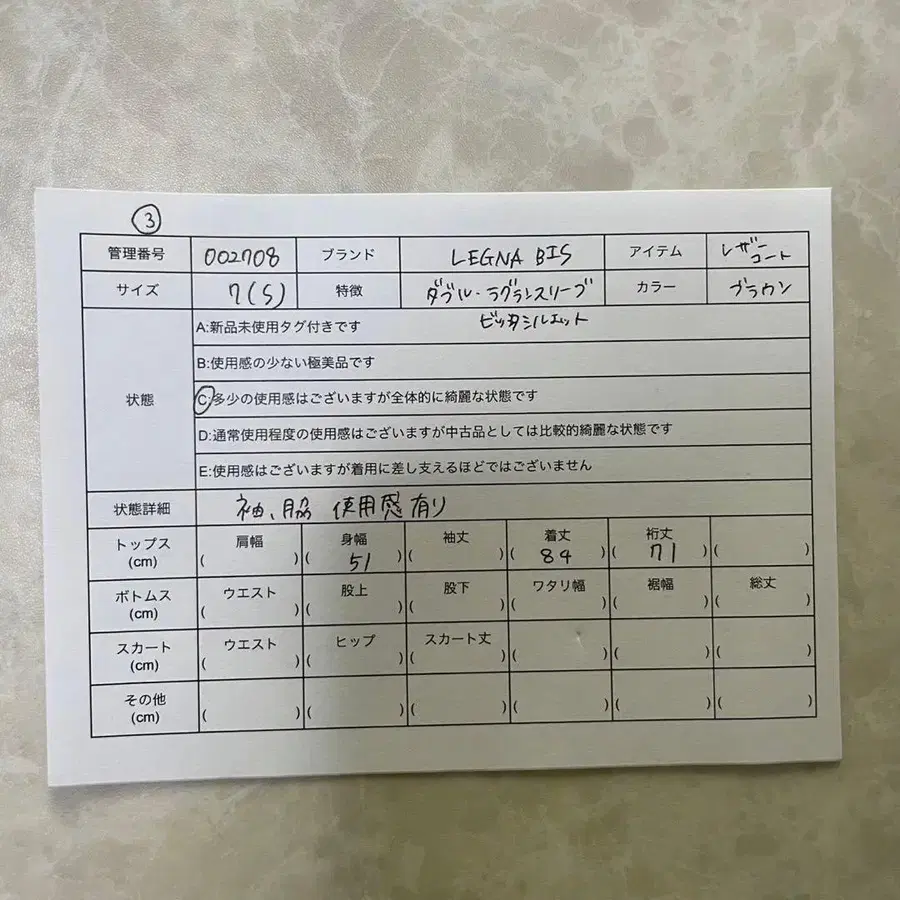 ③
管理番号 002708 ブランド LEGNA BIS アイテム レザーコート
サイズ 7(S) 特徴 ダブル・ラグランスリーブ カラー ブラウン
ビッグシルエット
状態
A:新品未使用タグ付きです
B:使用感の少ない極美品です
C:多少の使用感はございますが全体的に綺麗な状態です
D:通常使用程度の使用感はございますが中古品としては比較的綺麗な状態です
E:使用感はございますが着用に差し支えるほどではございません
状態詳細 袖、脇 使用感有り
トップス 肩幅 身幅 袖丈 着丈 裄丈
(cm) ( ) ( 51 ) ( ) ( 84 ) ( 71 ) ( )
ボトムス ウエスト 股上 股下 ワタリ幅 裾幅 総丈
(cm) ( ) ( ) ( ) ( ) ( ) ( )
スカート ウエスト ヒップ スカート丈
(cm) ( ) ( ) ( ) ( ) ( ) ( )
その他
(cm) ( ) ( ) ( ) ( ) ( ) ( )